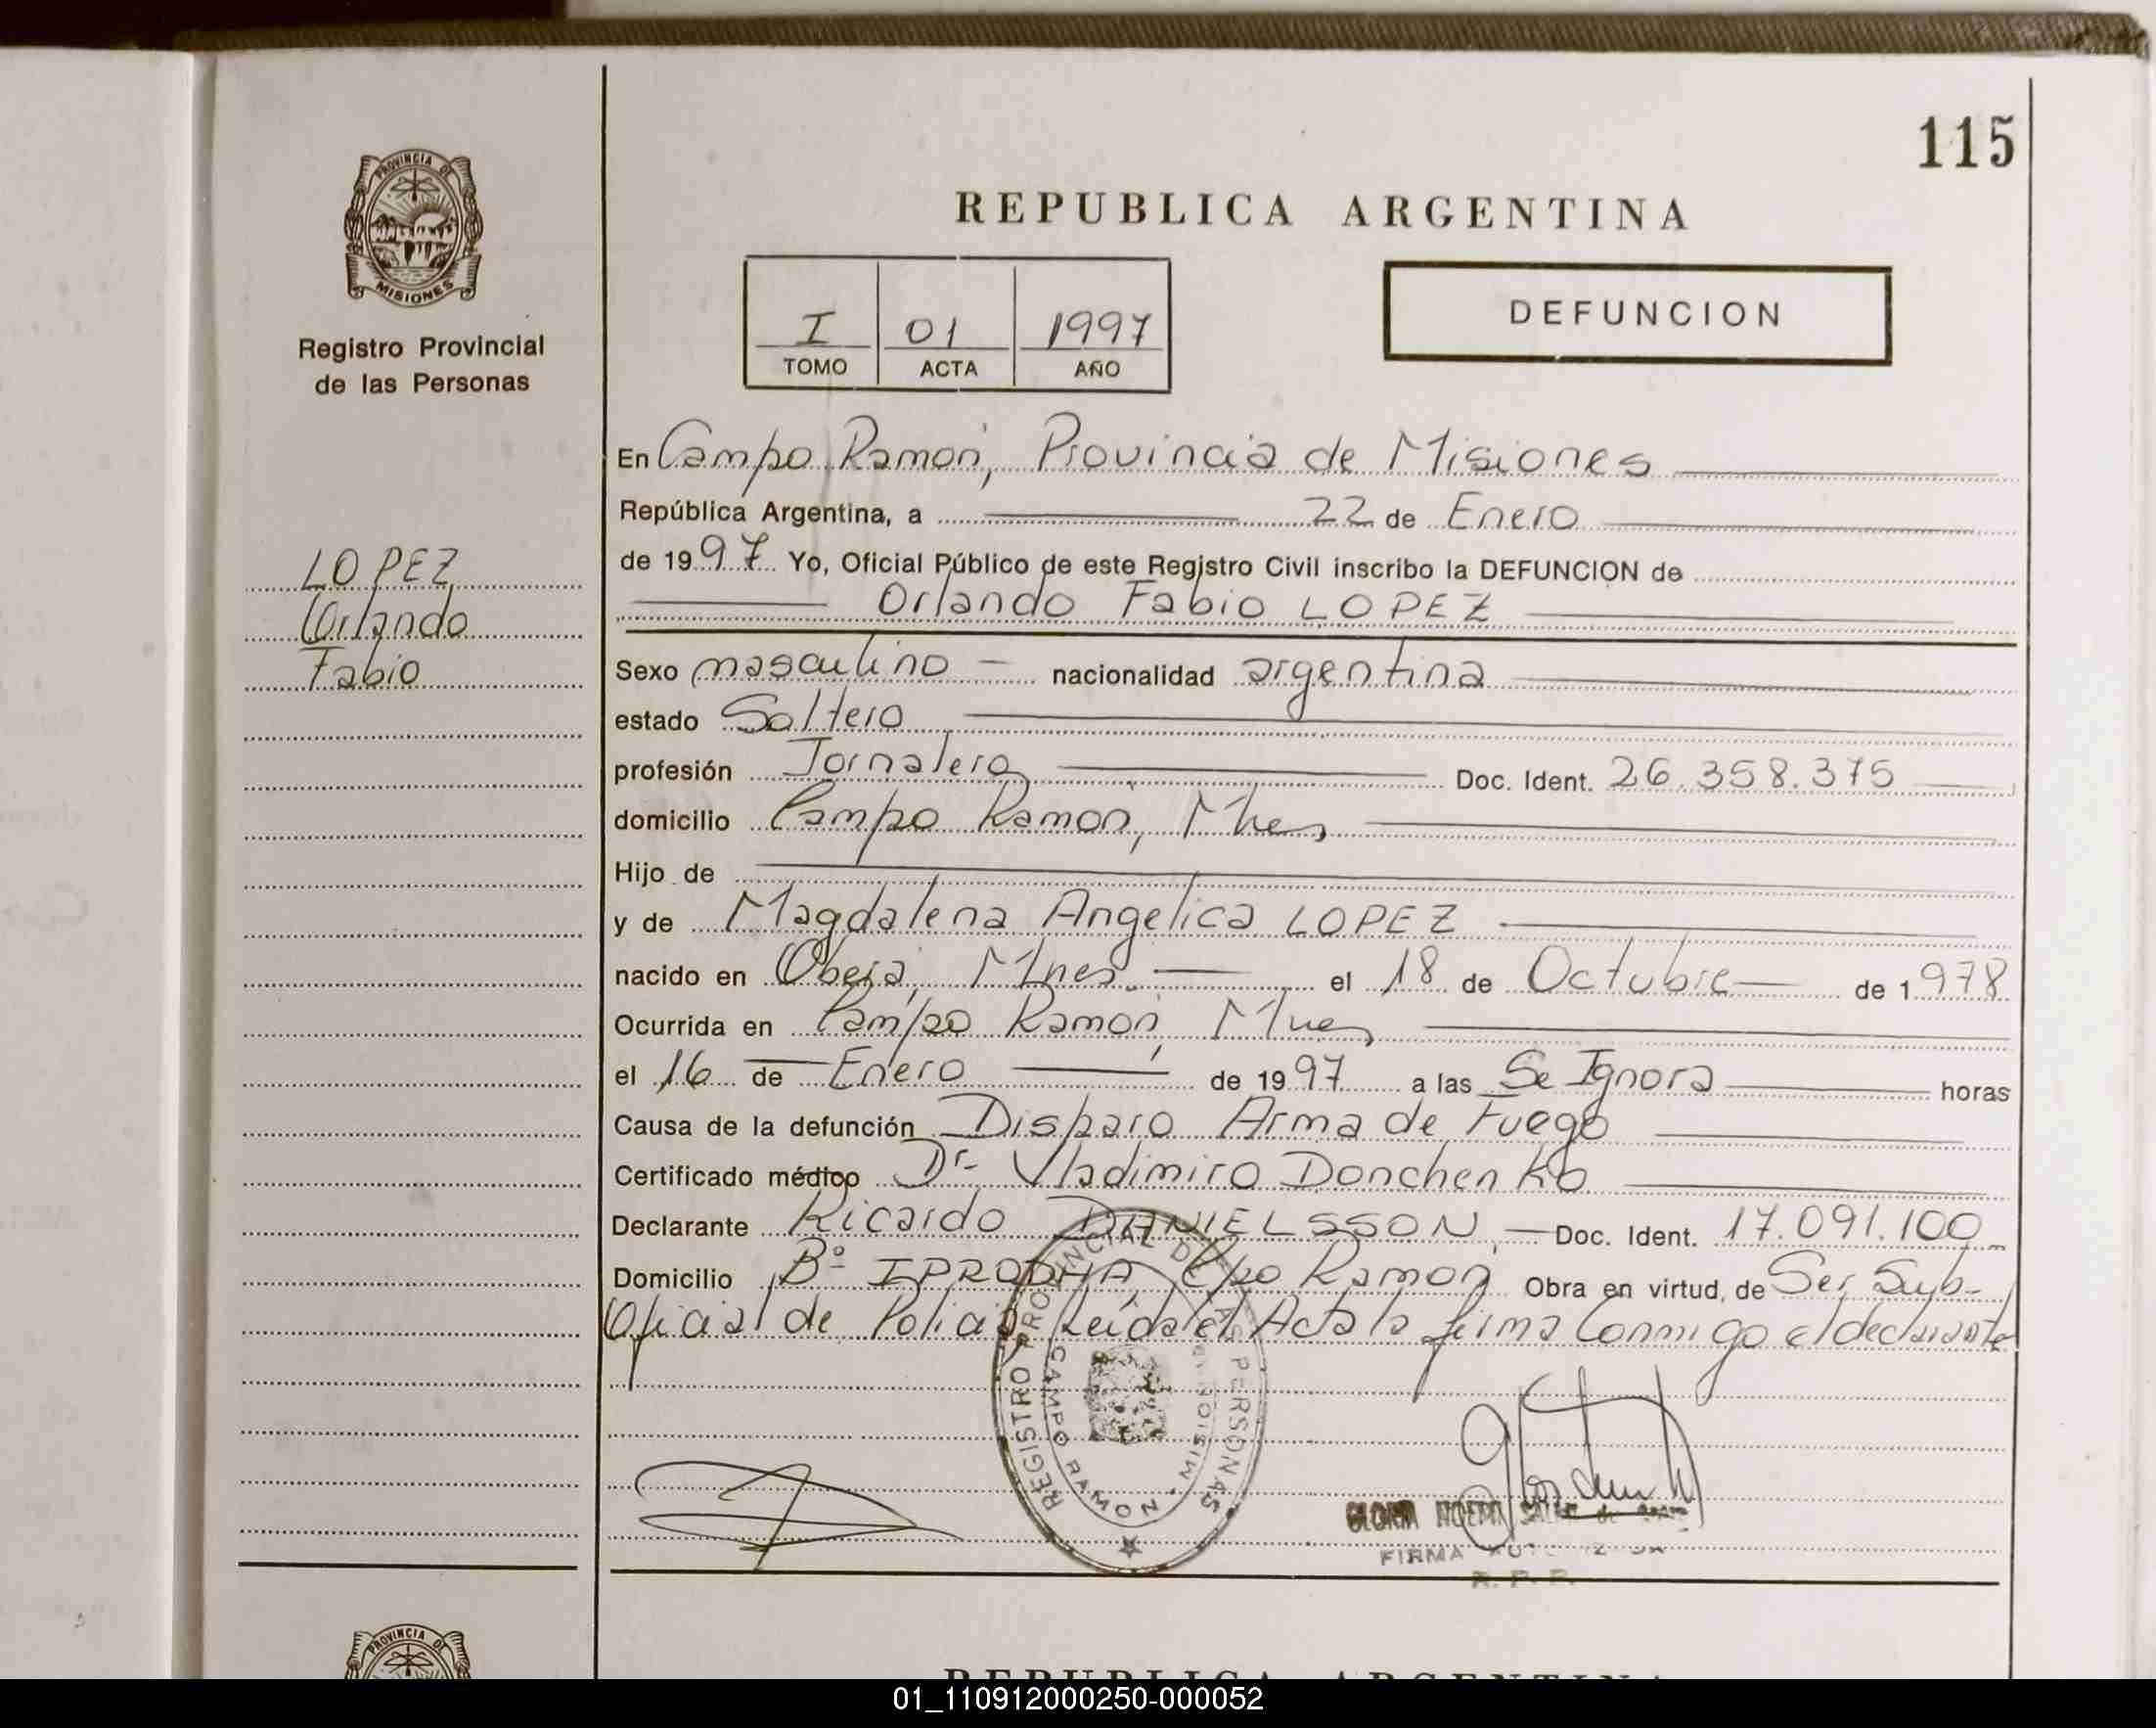 115
PROVINCIA DE
MISIONES
Registro Provincial
de las Personas
REPUBLICA ARGENTINA
I 01 1997
TOMO ACTA AÑO
DEFUNCION
LOPEZ
Orlando
Fabio
En Campo Ramón, Provincia de Misiones
República Argentina, a 22 de Enero
de 1997 Yo, Oficial Público de este Registro Civil inscribo la DEFUNCION de
Orlando Fabio LOPEZ
Sexo masculino nacionalidad argentina
estado Soltero
profesión Jornalero Doc. Ident. 26.358.375
domicilio Campo Ramón, Mnes
Hijo de
y de Magdalena Angelica LOPEZ
nacido en Oberá, Mnes. el 18 de Octubre de 1978
Ocurrida en Campo Ramón, Mnes
el 16 de Enero de 1997 a las Se Ignora horas
Causa de la defunción Disparo Arma de Fuego
Certificado médico Dr Vladimiro Donchenko
Declarante Ricardo DANIELSSON, Doc. Ident. 17.091.100
Domicilio Bº IPRODHA, Cpo Ramón Obra en virtud, de Ser Sub-
Oficial de Policia, Leída el Acta la firma Conmigo el declarante
REGISTRO PROVINCIAL DE LAS PERSONAS
CAMPO RAMON - MISIONES
GLORIA NOEMI
FIRMA
R. P. P.
PROVINCIA DE
REPUBLICA ARGENTINA
01_110912000250-000052